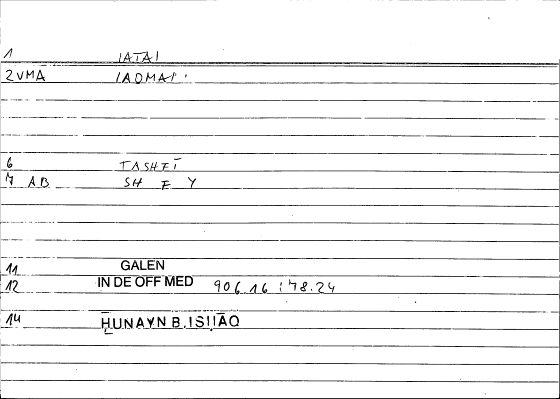 1 IATAI
2VMA IAOMAI.
6 TASHFI
7 AB SH F Y
11 GALEN
12 IN DE OFF MED 906.16:78.24
14 ḤUNAYN B.ISḤĀQ